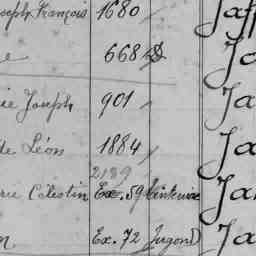 oseph François 1680 Jaff
e 668 Ja
ie Joseph 901 Ja
de Léon 1884 Ja
2189
rie Célestin Ex. 59 Ja
n Ex. 72 Jugond Ja